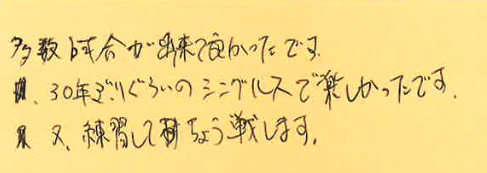 多数試合が出来て良かったです。
30年ぶりぐらいのシングルスで楽しかったです。
又、練習してちょう戦します。